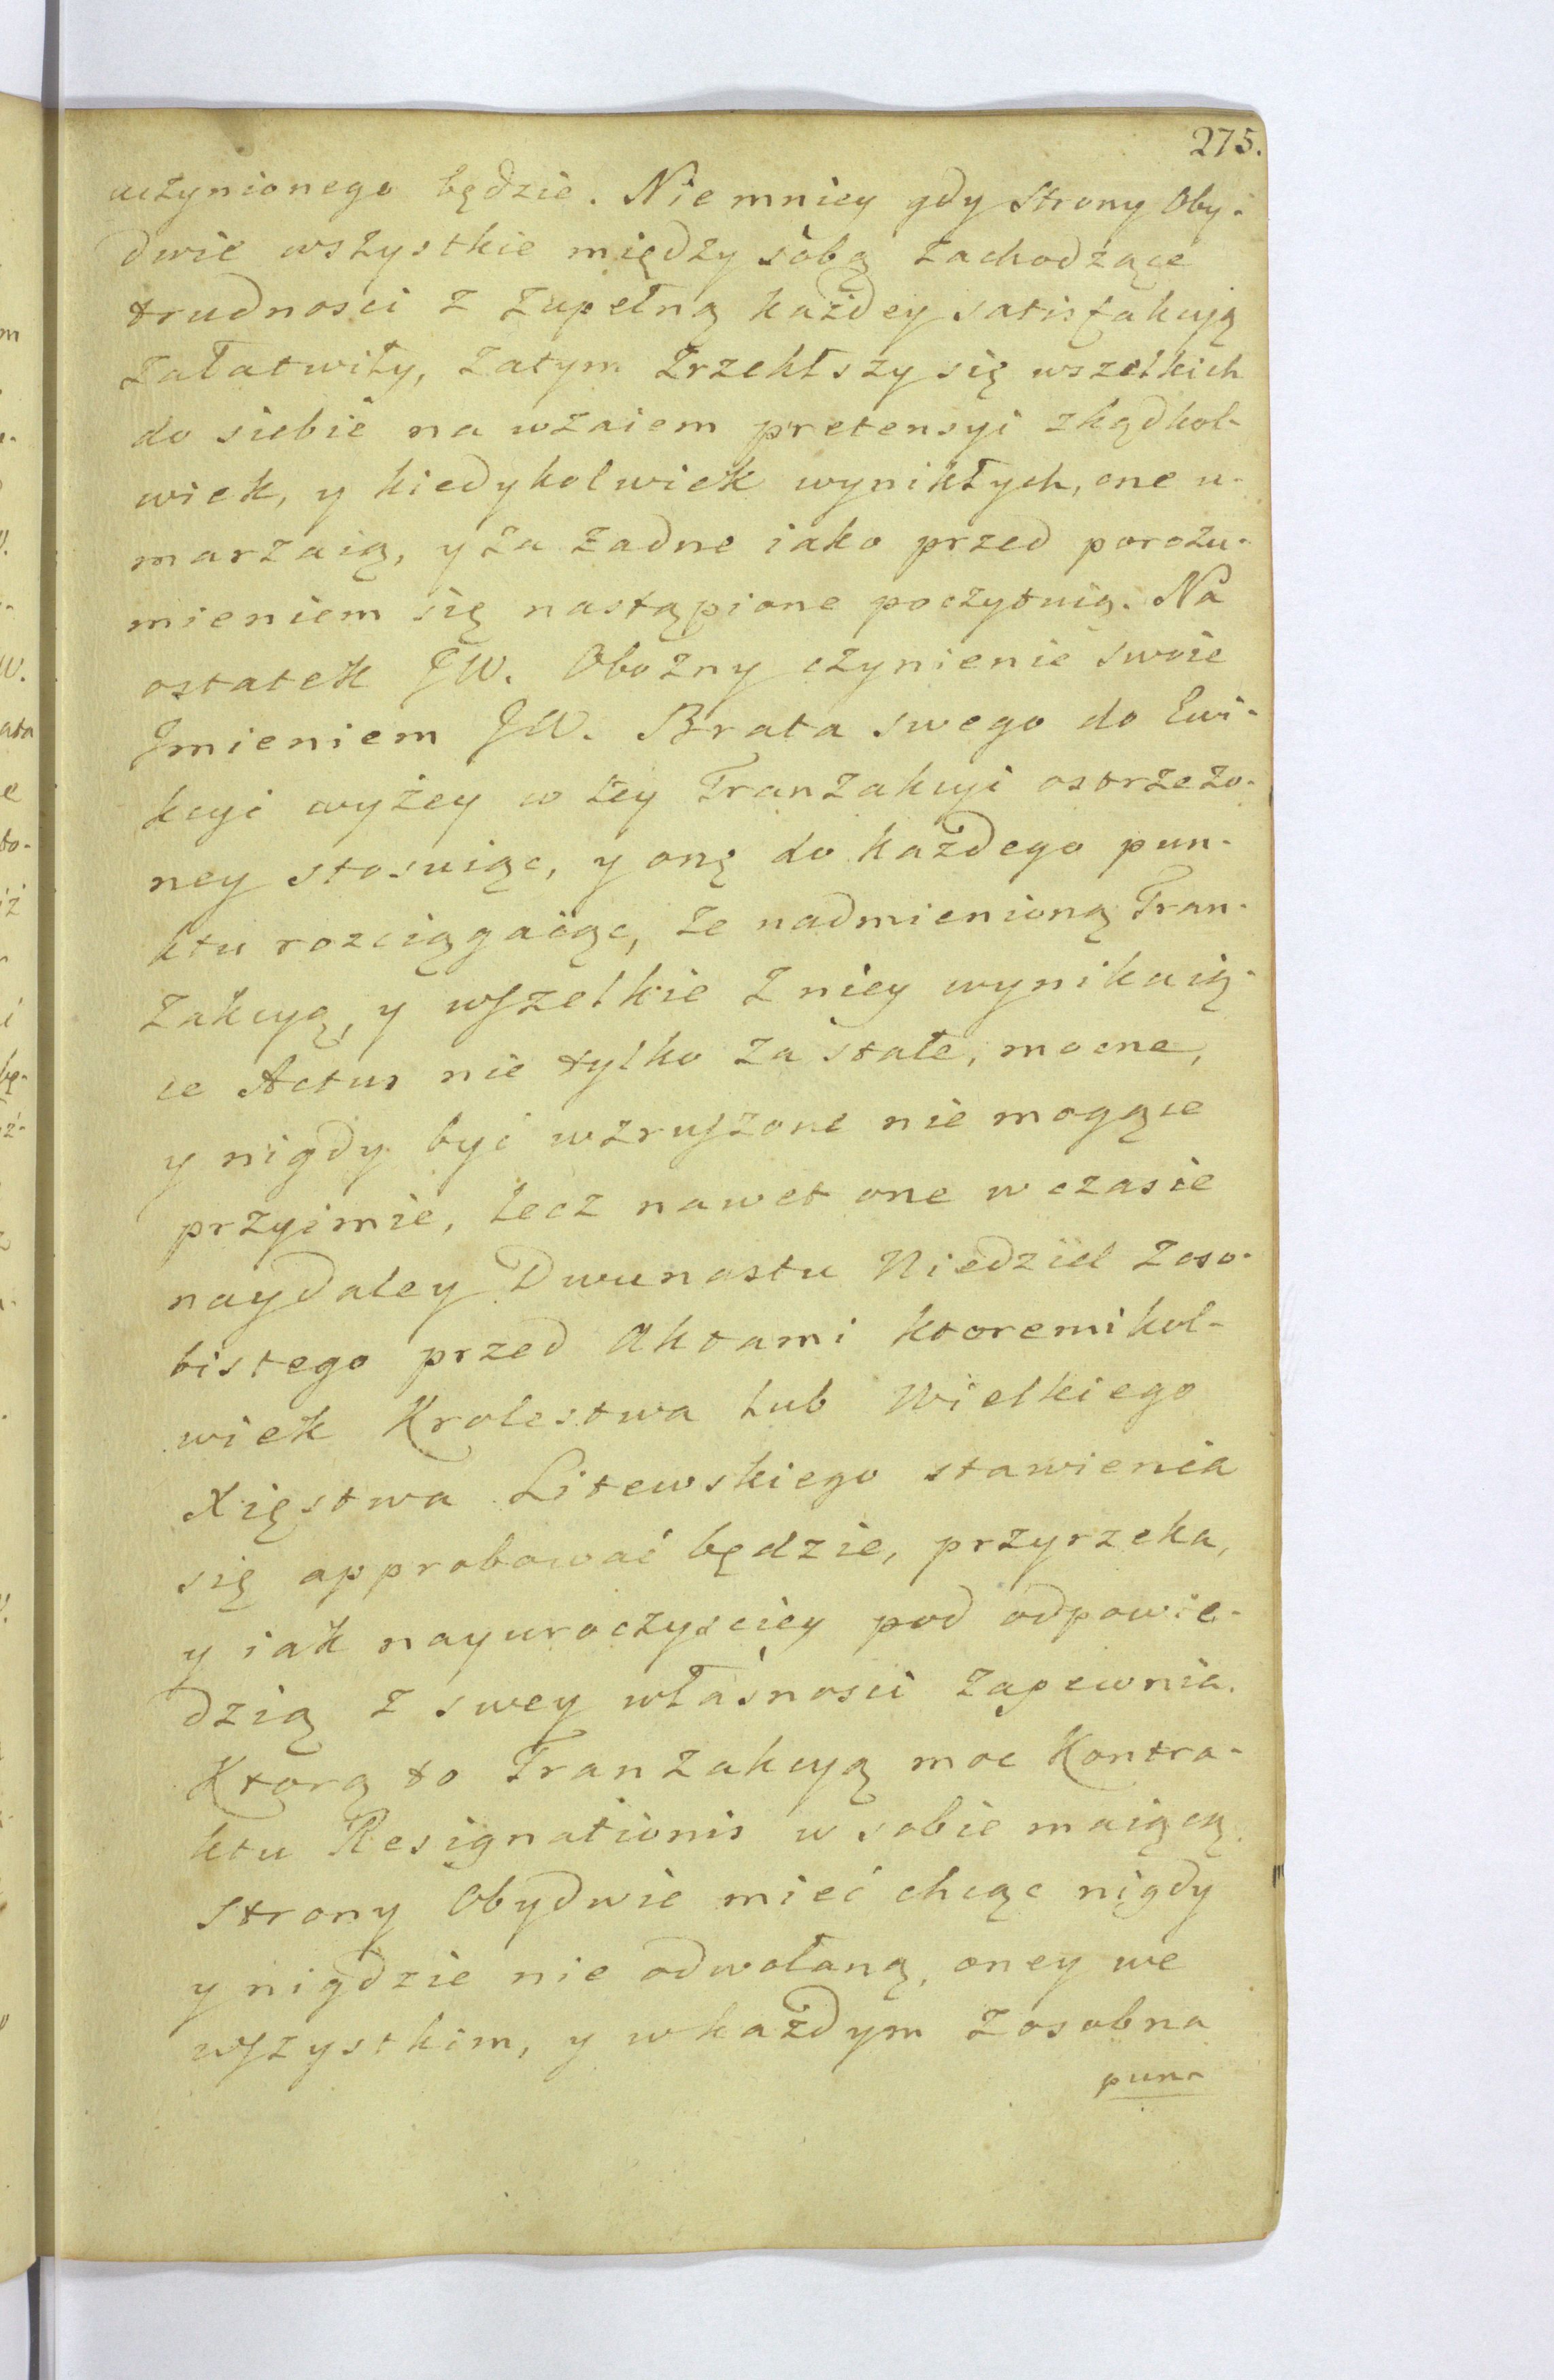 275.
uczynionego będzie. Nie mniey gdy Strony Oby-
dwie wszystkie między sobą zachodzące
trudnosci z zupełną każdey satisfakcyą
załatwiły, zatym zrzekłszy się wszelkich
do siebie na wzaiem pretensyi zkądkol-
wiek, y kiedykolwiek wynikłych, one u-
marzaią, y za żadne iako przed porozu-
mieniem się nastąpione poczytuią. Na
ostatek JW. Obozny czynienie swoie
Jmieniem JW. Brata swego do Ewi-
kcyi wyżey w tey Tranzakcyi ostrzeżo-
ney stosuiąc, y onę do każdego pun-
ktu rozciągaiąc, że nadmienioną Tran-
zakcyą, y wszelkie z niey wynikaią-
ce Actus nie tylko za stałe, mocne,
y nigdy być wzruszone nie mogące
przyimie, lecz nawet one w czasie
naydaley Dwunastu Niedziel z oso-
bistego przed Aktami ktoremikol-
wiek Krolestwa lub Wielkiego
Xięstwa Litewskiego stawienia
się approbować będzie, przyrzeka,
y iak nayuroczysciey pod odpowie-
dzią z swey własnosci zapewnia.
Ktorą to Tranzakcyą moc Kontra-
ktu Resignationis w sobie maiącą
Strony Obydwie mieć chcąc nigdy
y nigdzie nie odwołaną, oney we
wszystkim, y w każdym z osobna
pun-